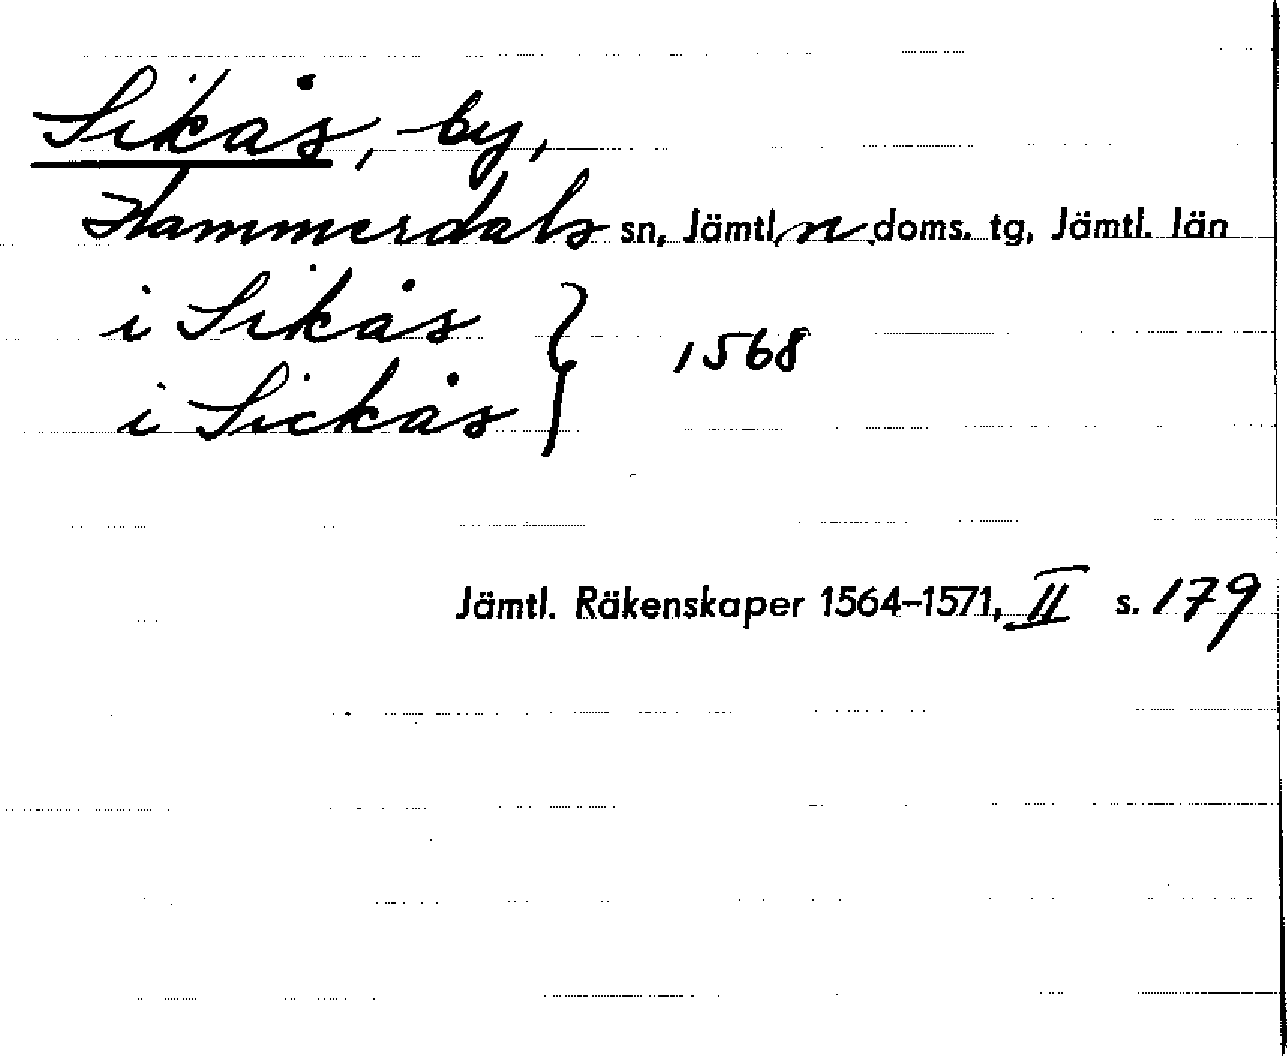 Sikås, by,
Hammerdals sn, Jämtl. n doms. tg, Jämtl. län
i Sikås
i Sickås } 1568
Jämtl. Räkenskaper 1564–1571, II s. 179